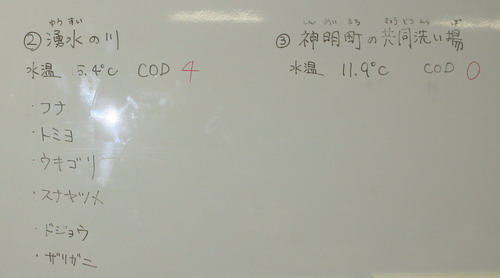 ゆうすい
② 湧水の川
水温 15.4℃ COD 4
・フナ
・トミヨ
・ウキゴリ
・スナヤツメ
・ドジョウ
・ザリガニ
しんめいちょう きょうどうあら ば
③ 神明町の共同洗い場
水温 11.9℃ COD 0